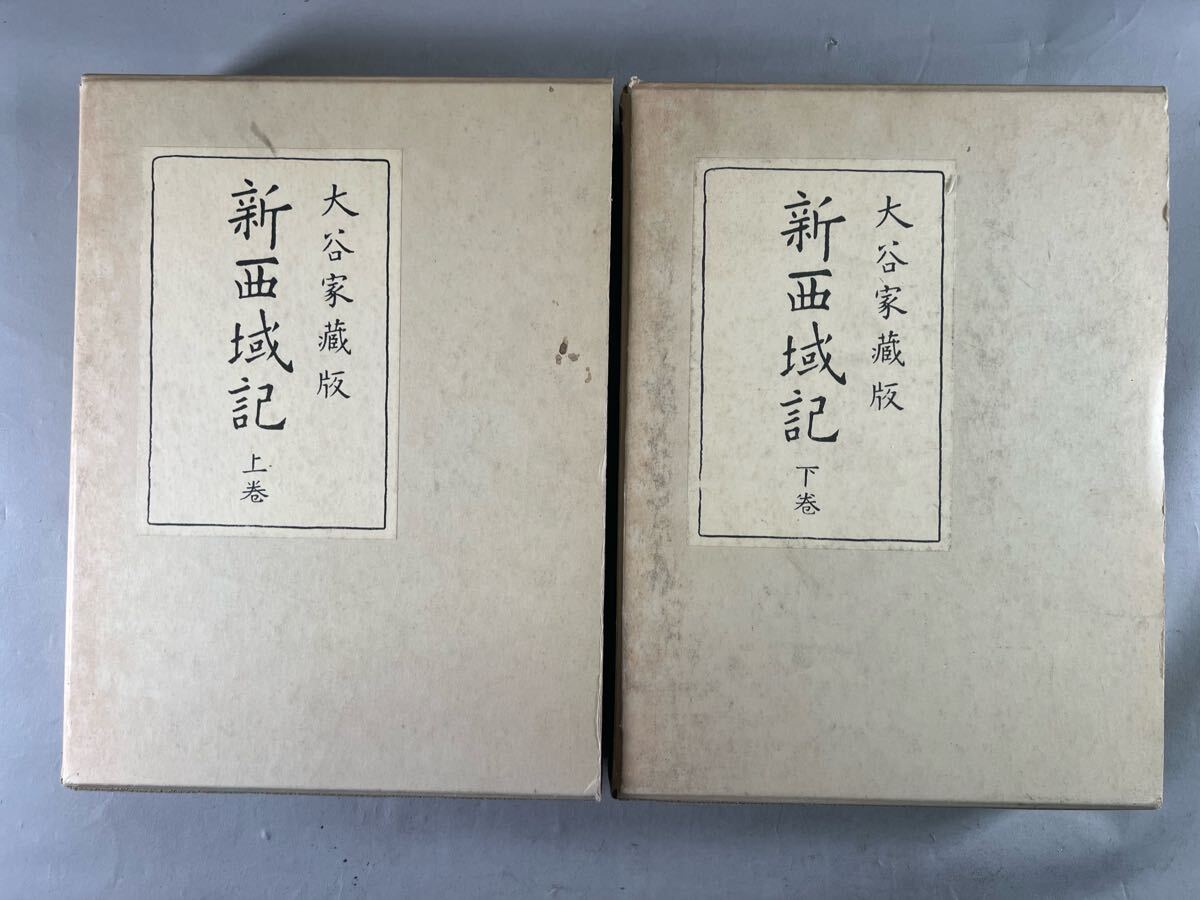 大谷家蔵版
新西域記
上巻
大谷家蔵版
新西域記
下巻